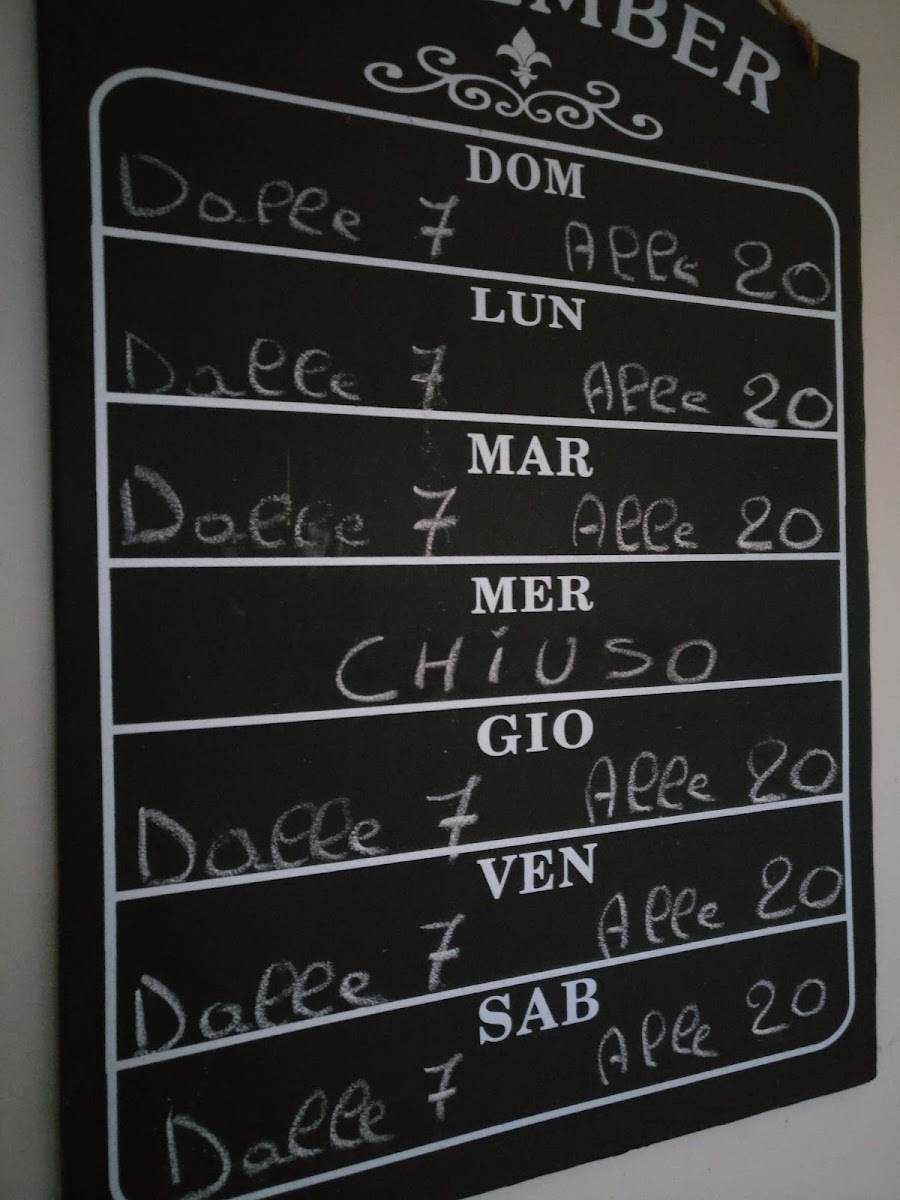 DOM
Dalle 7 Alle 20
LUN
Dalle 7 Alle 20
MAR
Dalle 7 Alle 20
MER
CHiUSO
GIO
Dalle 7 Alle 20
VEN
Dalle 7 Alle 20
SAB
Dalle 7 Alle 20